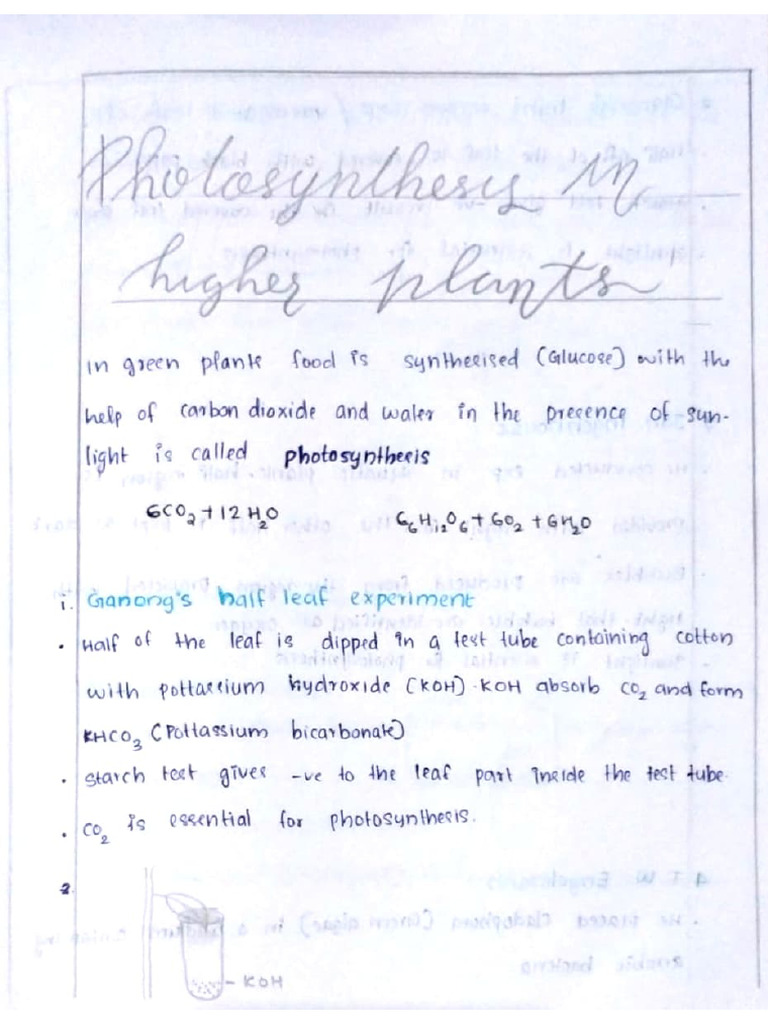 Photosynthesis in
higher plants
In green plants food is synthesised (Glucose) with the
help of carbon dioxide and water in the presence of sun-
light is called photosynthesis
6CO2 + 12H2O C6H12O6 + 6O2 + 6H2O
1. Ganong's half leaf experiment
• Half of the leaf is dipped in a test tube containing cotton
with pottassium hydroxide (KOH). KOH absorb CO2 and form
KHCO3 (Pottassium bicarbonate)
• starch test gives -ve to the leaf part inside the test tube.
• CO2 is essential for photosynthesis.
2.
- KOH